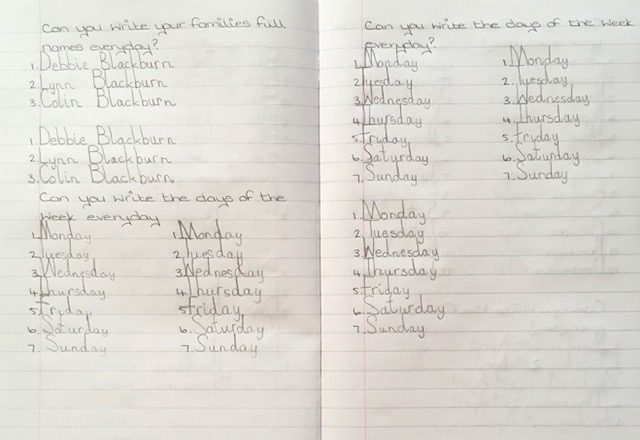 Can you write your families full
names everyday?
1. Debbie Blackburn
2. Lynn Blackburn
3. Colin Blackburn
1. Debbie Blackburn
2. Lynn Blackburn
3. Colin Blackburn
Can you write the days of the
week everyday
1. Monday
2. Tuesday
3. Wednesday
4. Thursday
5. Friday
6. Saturday
7. Sunday
1. Monday
2. Tuesday
3. Wednesday
4. Thursday
5. Friday
6. Saturday
7. Sunday
Can you write the days of the week
everyday?
1. Monday
2. Tuesday
3. Wednesday
4. Thursday
5. Friday
6. Saturday
7. Sunday
1. Monday
2. Tuesday
3. Wednesday
4. Thursday
5. Friday
6. Saturday
7. Sunday
1. Monday
2. Tuesday
3. Wednesday
4. Thursday
5. Friday
6. Saturday
7. Sunday